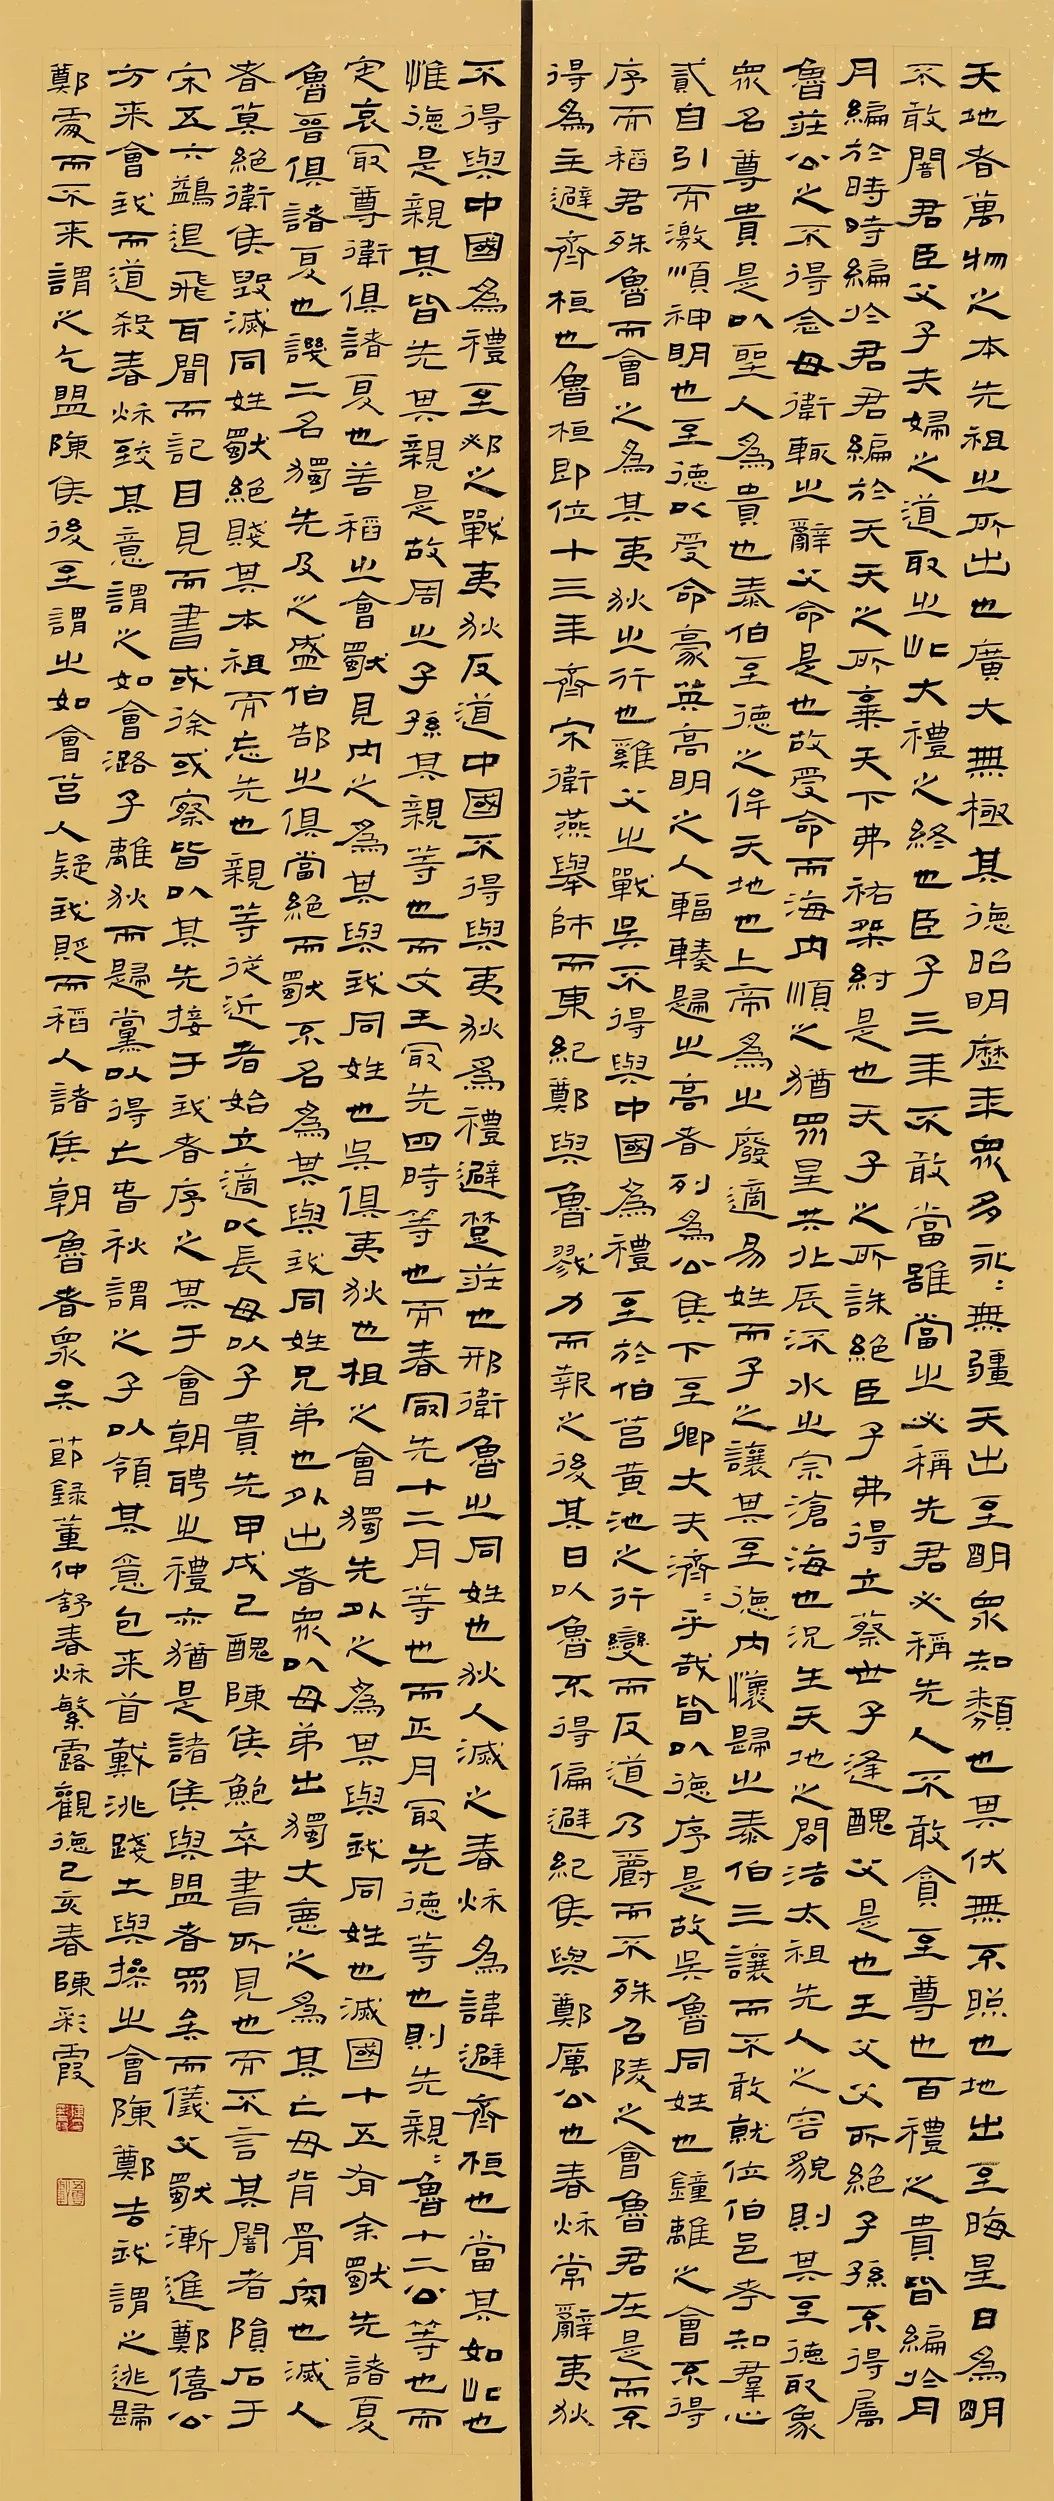 天地者萬物之本先祖之所出也廣大無極其德昭明歷年衆多永〻無疆天出至明衆知類也其伏無不炤也地出至晦星日為明
不敢闇君臣父子夫婦之道取之此大禮之終也臣子三年不敢當雖當之必稱先君必稱先人不敢貪至尊也百禮之貴皆編於月
月編於時時編於君君編於天天之所棄天下弗祐桀紂是也天子之所誅絕臣子弗得立蔡世子逢醜父是也王父父所絕子孫不得屬
魯莊公之不得念母衛輒之辭父命是也故受命而海內順之猶眾星共北辰流水之宗滄海也況生天地之間法太祖先人之容貌則其至德取象
衆名尊貴是以聖人為貴也泰伯至德之侔天地也上帝為之廢適易姓而子之讓其至德內懷歸之泰伯三讓而不敢就位伯邑考知羣心
貳自引而激順神明也至德以受命豪英高明之人輻輳歸之高者列為公侯下至卿大夫濟〻乎哉皆以德序是故吳魯同姓也鐘離之會不得
序而稻君殊魯而會之為其夷狄之行也雞父之戰吳不得與中國為禮至於伯莒黃池之行變而反道乃爵而不殊召陵之會魯君在是而不
得為主避齊桓也魯桓即位十三年齊宋衛燕舉師而東紀鄭與魯戮力而報之後其日以魯不得偏避紀侯與鄭厲公也春秋常辭夷狄
不得與中國為禮至邲之戰夷狄反道中國不得與夷狄為禮避楚莊也邢衛魯之同姓也狄人滅之春秋為諱避齊桓也當其如此也
惟德是親其皆先其親是故周之子孫其親等也而文王最先四時等也而春最先十二月等也而正月最先德等也則先親〻魯十二公等也而
定哀最尊衛俱諸夏也善稻之會獨見內之為其與我同姓也吳俱夷狄也柤之會獨先外之為其與我同姓也滅國十五有余獨先諸夏
魯晉俱諸夏也譏二名獨先及之盛伯郜之俱當絕而獨不名為其與我同姓兄弟也外出者衆以母弟出獨大惡之為其亡母背骨肉也滅人
者莫絕衛侯毀滅同姓獨絕賤其本祖而忘先也親等從近者始立適以長母以子貴先甲戌己醜陳侯鮑卒書所見也而不言其闇者隕石于
宋五六鷁退飛耳聞而記目見而書或徐或察皆以其先接于我者序之其于會朝聘之禮亦猶是諸侯與盟者眾矣而儀父獨漸進鄭僖公
方來會我而道殺春秋致其意謂之如會潞子離狄而歸黨以得亡春秋謂之子以領其意包来首戴洮踐土與操之會陳鄭去我謂之逃歸
鄭處而不来謂之乞盟陳侯後至謂之如會莒人疑我貶而稻人諸侯朝魯者衆矣 節錄董仲舒春秋繁露觀德己亥春陳彩霞